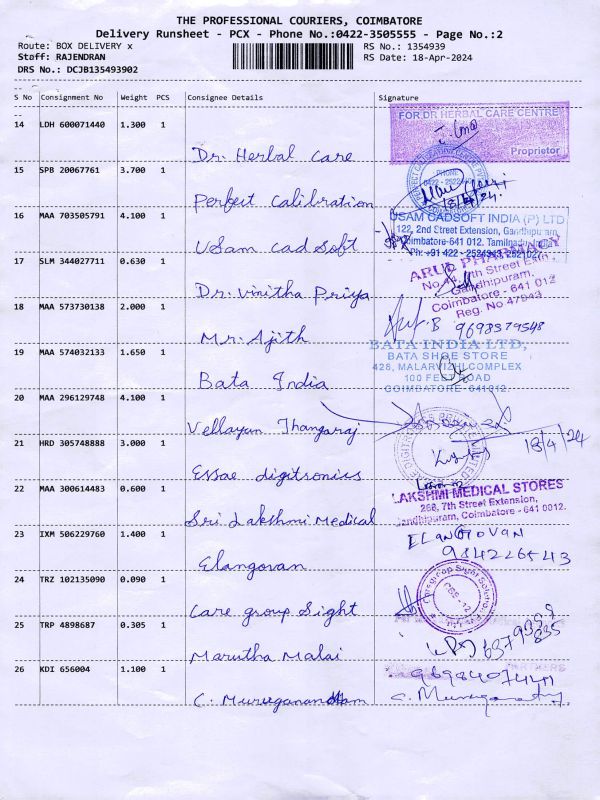 THE PROFESSIONAL COURIERS, COIMBATORE
Delivery Runsheet - PCX - Phone No.:0422-3505555 - Page No.:2
Route: BOX DELIVERY x RS No.: 1354939
Staff: RAJENDRAN RS Date: 18-Apr-2024
DRS No.: DCJB135493902
S No Consignment No Weight PCS Consignee Details Signature
14 LDH 600071440 1.300 1
FOR DR HERBAL CARE CENTRE
Proprietor
Dr. Herbal Care
15 SPB 20067761 3.700 1
PHONE
Perfect Calibration
16 MAA 703505791 4.100 1
USAM CADSOFT INDIA (P) LTD
122, 2nd Street Extension, Gandhipuram,
Coimbatore-641 012. Tamilnadu, India
USam Cad Soft
17 SLM 344027711 0.630 1
ARUL PHARMACY
Gandhipuram.
Coimbatore - 641 012
Reg. No 47943
Dr. Vinitha Priya
18 MAA 573730138 2.000 1
B 9698379548
Mr. Ajith
19 MAA 574032133 1.650 1
BATA INDIA LTD,
BATA SHOE STORE
428, MALARVIZHI COMPLEX
100 FEET ROAD
COIMBATORE
Bata India
20 MAA 296129748 4.100 1
Vellayan Thangaraj
21 HRD 305748888 3.000 1
18/4/24
Essae digitronics
22 MAA 300614483 0.600 1
LAKSHMI MEDICAL STORES
268, 7th Street Extension,
Gandhipuram, Coimbatore - 641 0012.
Sri Lakshmi Medical
23 IXM 506229760 1.400 1
ELANGOVAN
984226543
Elangovan
24 TRZ 102135090 0.090 1
Care group Sight
25 TRP 4898687 0.305 1
Marutha Malai
26 KDI 656004 1.100 1
C. Muruganandham